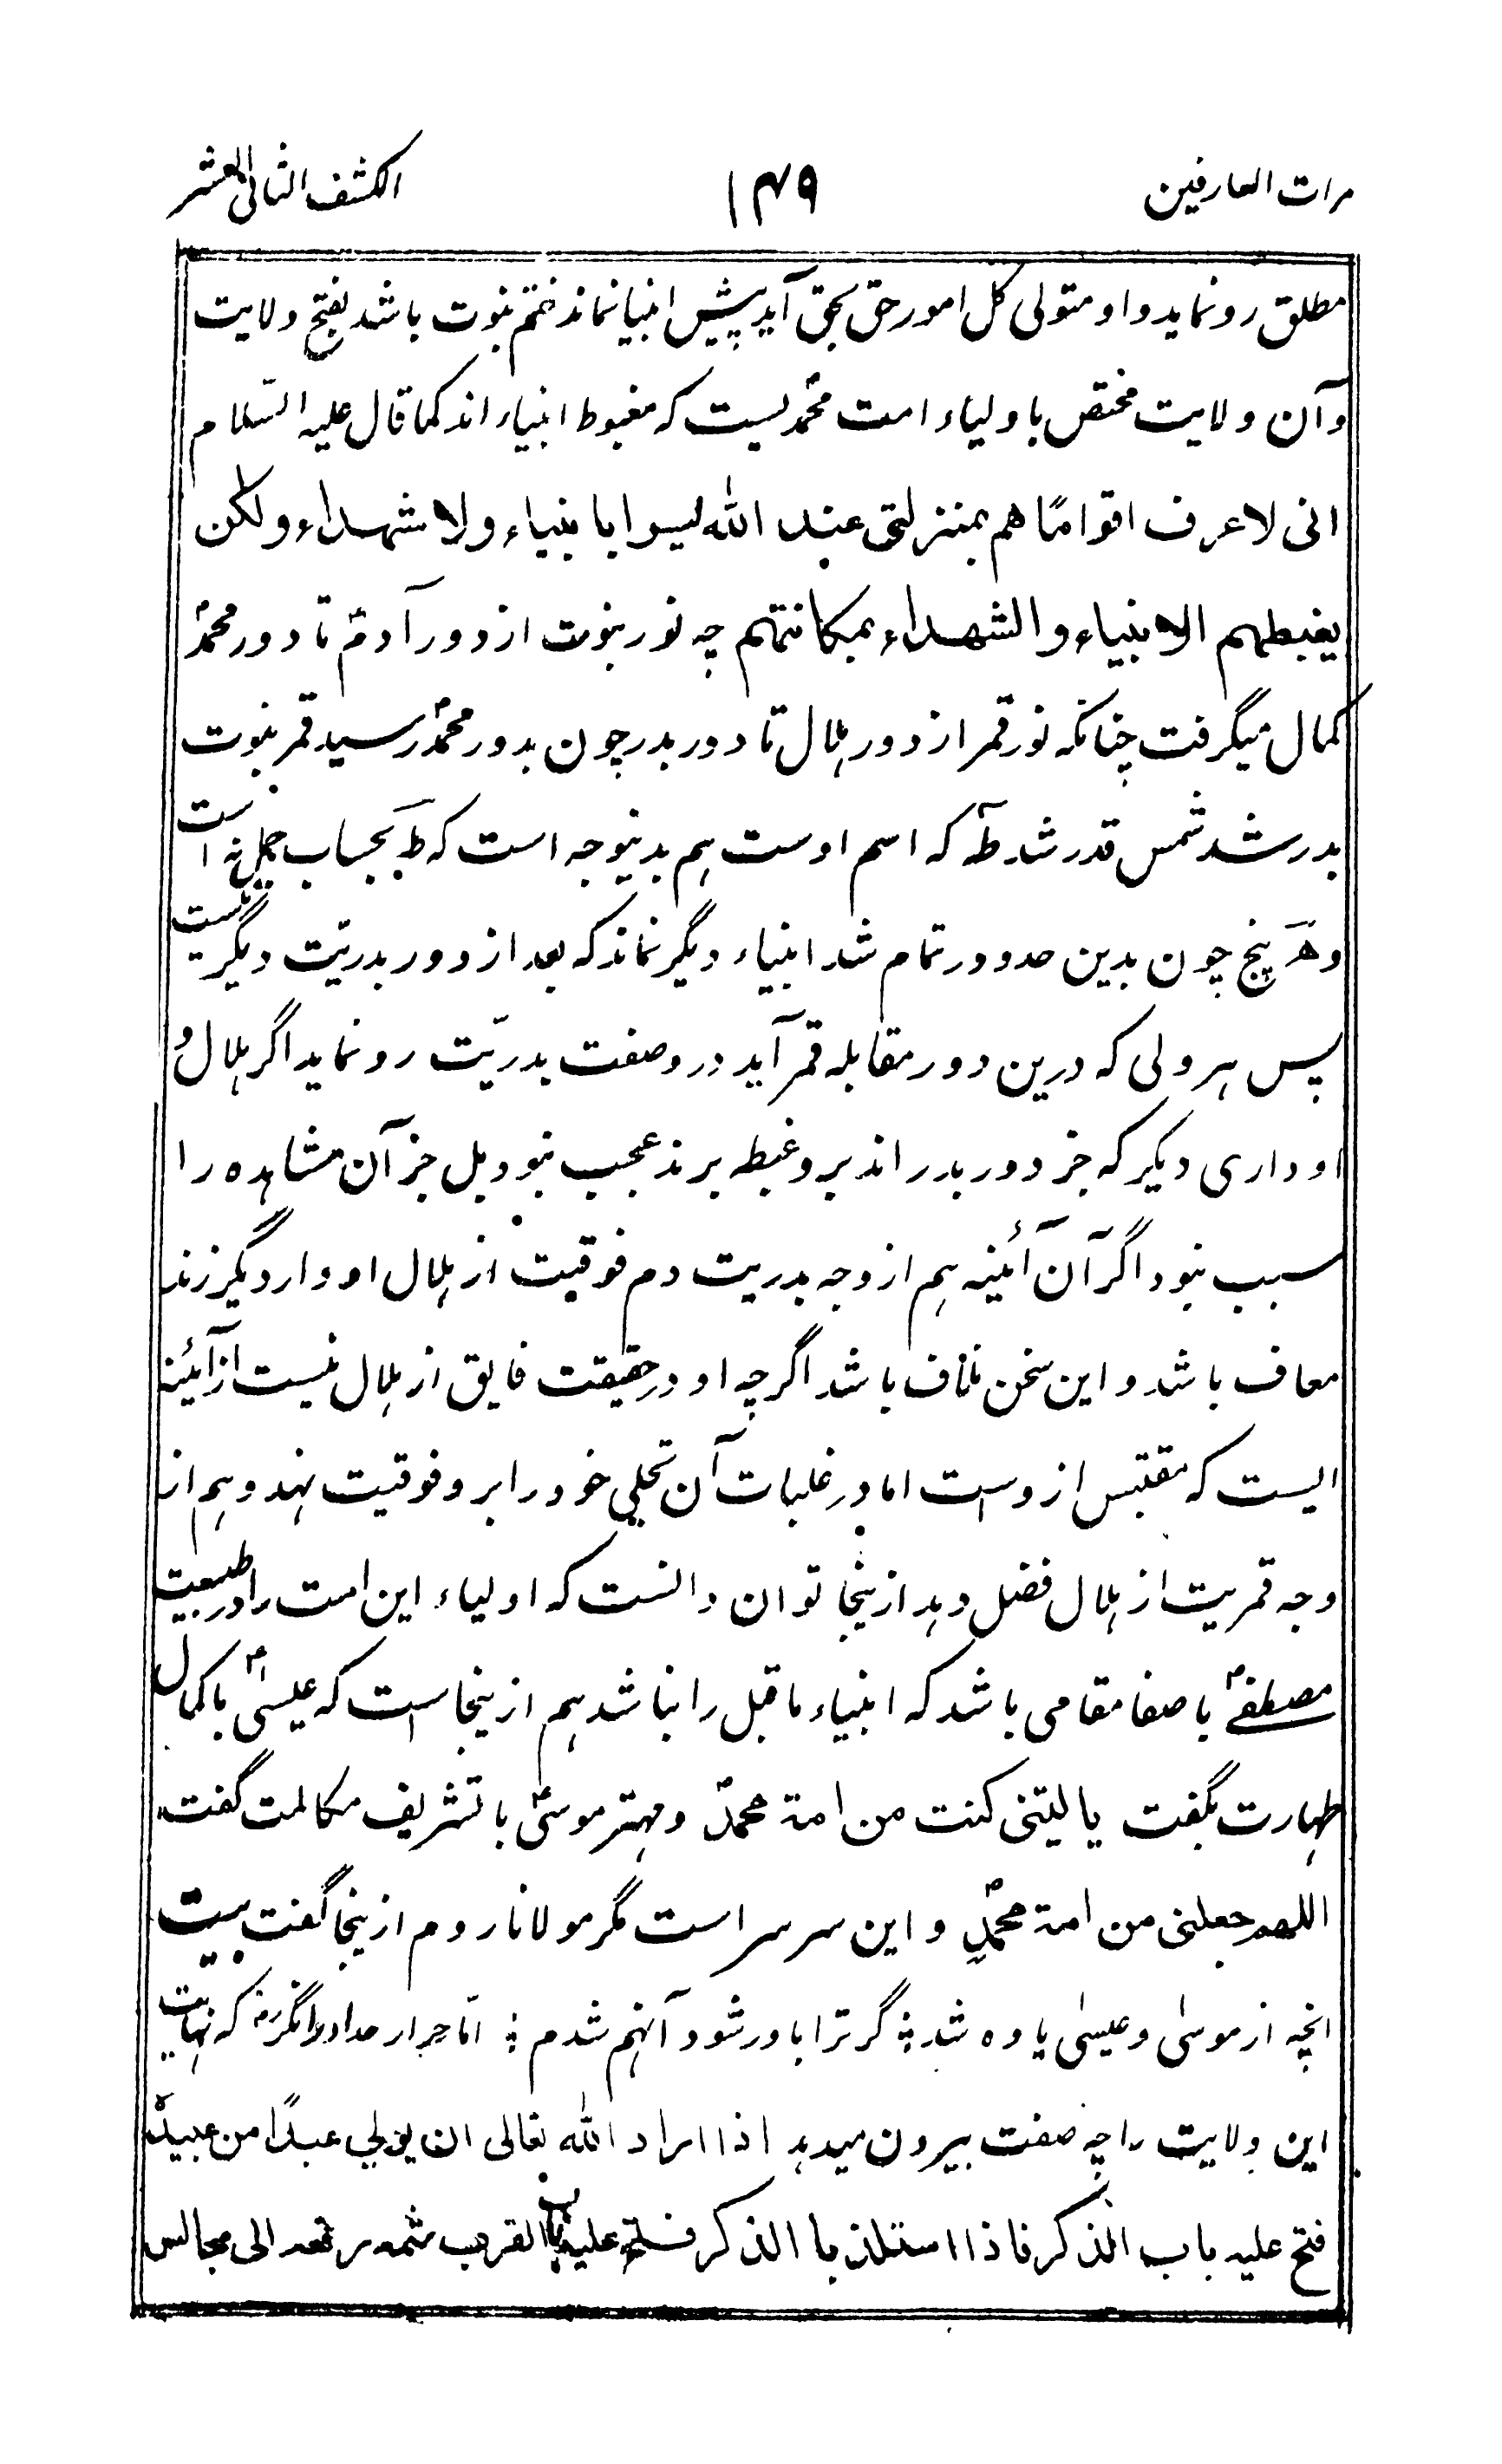 مرات العارفین ۱۴۹ الکشف الثانی العشر
مطلق رو نماید و او متولی کل امور حق بحق آید پیش انبیا نماند ختم نبوت باشد بفتح ولایت
وآن ولایت مختص با ولیاء امت محمدؐ لیست که مغبوط انبیاء اند کما قال علیہ السّلام
انی لاعرف اقوامًا هم بمنزلتی عند اللّٰه لیسوا بانبیاء ولا شهداء ولکن
یغبطهم الانبیاء والشهداء بمکانتهم چه نور نبوت از دور آدمؑ تا دور محمدؐ
کمال میگرفت چنانکه نور قمر از دور ہلال تا دور بدر چون بدور محمدؐ رسید قمر نبوت
بدر شد شمس قدر شد طٰهٓ که اسم اوست ہم بدینوجه است که طَ بحساب جمل نه است
وهَ پنج چون بدین حد دور تمام شد انبیاء دیگر نماند که بعد از دور بدریّت دیگر نیست
پس ہر ولی که درین دور مقابله قمر آید در وصفت بدریّت رو نماید اگر ہلال وُ
او داری دیگر که جز دور بدر اند برو غبطه برند عجب نبود بل جز آن مشاہده را
سبب نبود اگر آن آئینه ہم از وجه بدریت دم فوقیت از ہلال ادوار دیگر زند
معاف باشد و این سخن نلاف باشد اگرچه او در حقیقت فایق از ہلال نیست از آئینۂ
الیست که مقتبس ازوست اما در غلبات آن تجلی خود را برو فوقیت نهد و ہم از
وجه قمریت از ہلال فضل دہد ازینجا توان دانست که اولیاء این امت را در طبیعت
مصطفےؐ باصفا مقامی باشد که انبیاء ماقبل را نباشد ہم ازینجاست که عیسیؑ با کمال
طہارت بگفت یا لیتنی کنت من امة محمدؐ و مہتر موسیؑ با تشریف مکالمت گفت
اللهم جعلنی من امة محمدٍؐ و این سر سر است مگر مولانا روم ازینجا گفت بیت
انچه از موسیٰ و عیسیٰ یاوه شد ؛ گر ترا باور شود آنہم شدم ؛ امّا که نہایت
این ولایت را چه صفت بیرون میدہد اذا اراد اللّٰه تعالی ان یولی عبدًا من عبیدہٖ
فتح علیہ باب الذکر فاذا استلذ با الذکر فتح علیہ باب القرب ثمه رفعه الی مجالس